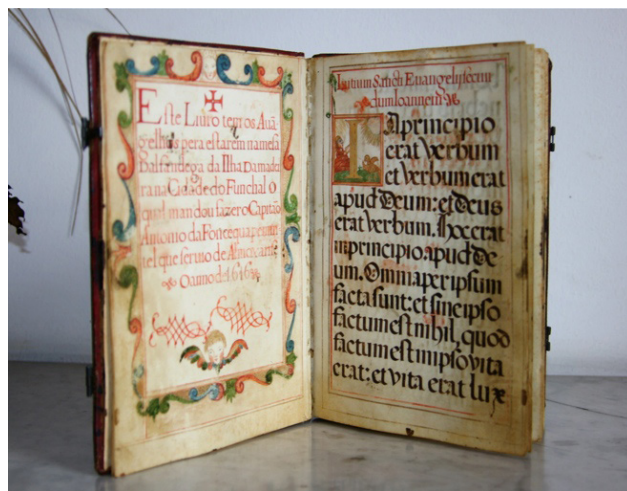 Este Liuro tem os Auã-
gelhos pera estarem namesa
Dalfandega da Ilha Damadei
ra na Cidade do Funchal O
qual mandou fazer o Capitão
Antonio da Foncequa
uel que seruio de
O anno de 1616
Initium Sancti Euangelij secun
dum Ioannem
In principio
erat Verbum
et Verbum erat
apud Deum: et Deus
erat Verbum. Hoc erat
in principio apud De
um. Omnia per ipsum
facta sunt: et sine ipso
factum est nihil, quod
factum est in ipso vita
erat: et vita erat lux